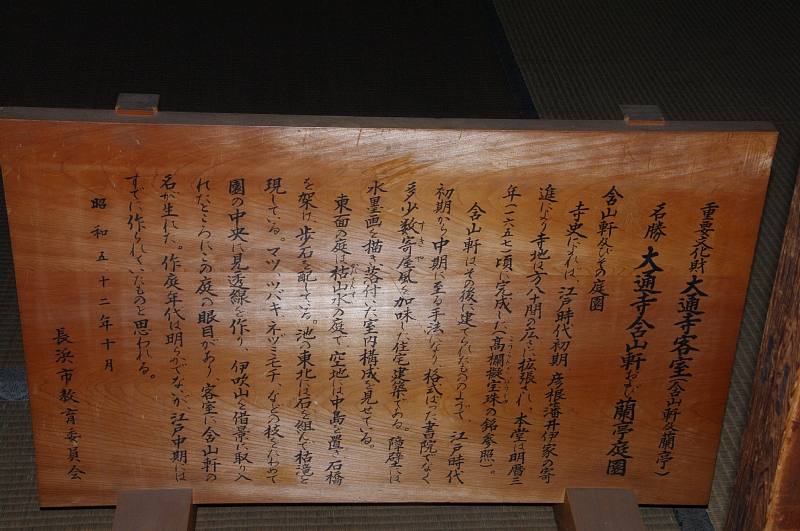 重要文化財 大通寺客室(含山軒及蘭亭)
名勝 大通寺含山軒および蘭亭庭園
含山軒及びその庭園
寺史によれば、江戸時代初期、彦根藩井伊家の寄
進により寺地は方八十間の広さに拡張され、本堂は明暦三
年(一六五七)頃に完成した(高欄擬宝珠の銘参照)。
含山軒はその後に建てられたものよって、江戸時代
初期から中期に至る手法になり、格式ばった書院でなく
多少数寄屋風を加味した住宅建築である。障壁には
水墨画を描き姿付いた室内構成を見せている。
東面の庭は枯山水の庭で、空地には中島を置き石橋
を架け、歩石を配している。池の東北には石を組んで枯滝を
現している。マツ、ツバキ、ネズミモチ、などの枝をたわめて
園の中央に見透線を作り、伊吹山を借景に取り入
れたところにこの庭の眼目があり、客室に含山軒の
名が生れた。作庭年代は明らかでないが江戸中期には
すでに作られていたものと思われる。
昭和五十二年十月
長浜市教育委員会